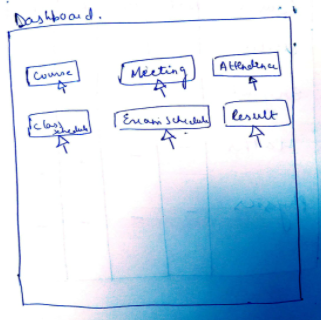 Dashboard.
Course
Meeting
Attendence
Class schedule
Exam schedule
Result